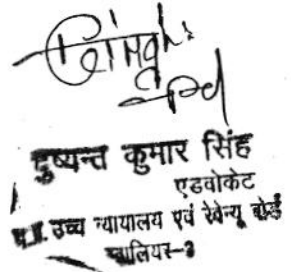 दुष्यन्त कुमार सिंह
एडवोकेट
उच्च न्यायालय एवं रेवेन्यू बोर्ड
ग्वालियर-3